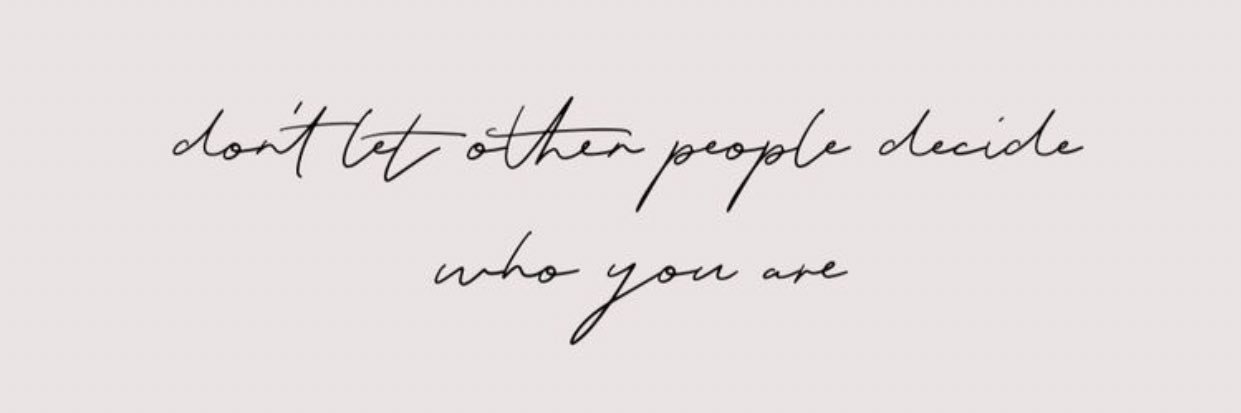 don't let other people decide
who you are